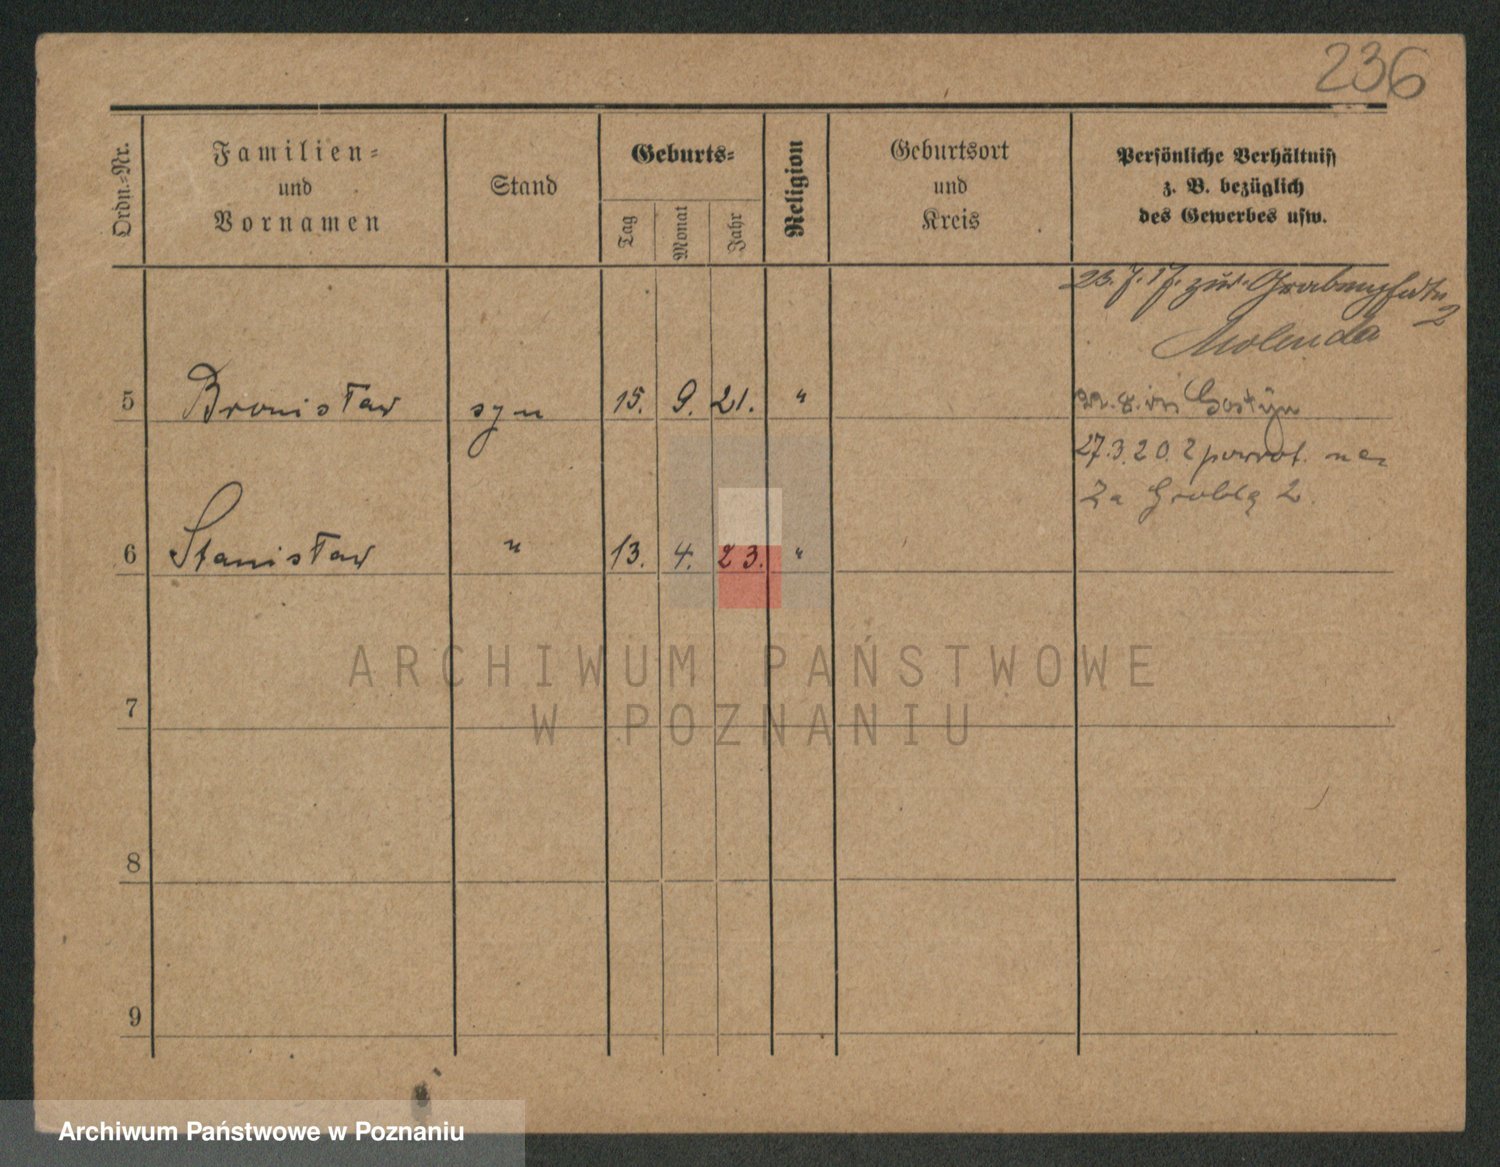 236
Ordn.-Nr.
Familien-
und
Vornamen
Stand
Geburts-
Tag
Monat
Jahr
Religion
Geburtsort
und
Kreis
Persönliche Verhältniss
z. B. bezüglich
des Gewerbes usw.
23. 7. 17. zur
2
Molenda
5 Bronisław syn 15. 9. 21. "
22. 8. Gostyn
27.3.20. powrot. na
Za Groblą 2.
6 Stanisław " 13. 4. 23. "
7
8
9
ARCHIWUM PAŃSTWOWE
W POZNANIU
Archiwum Państwowe w Poznaniu